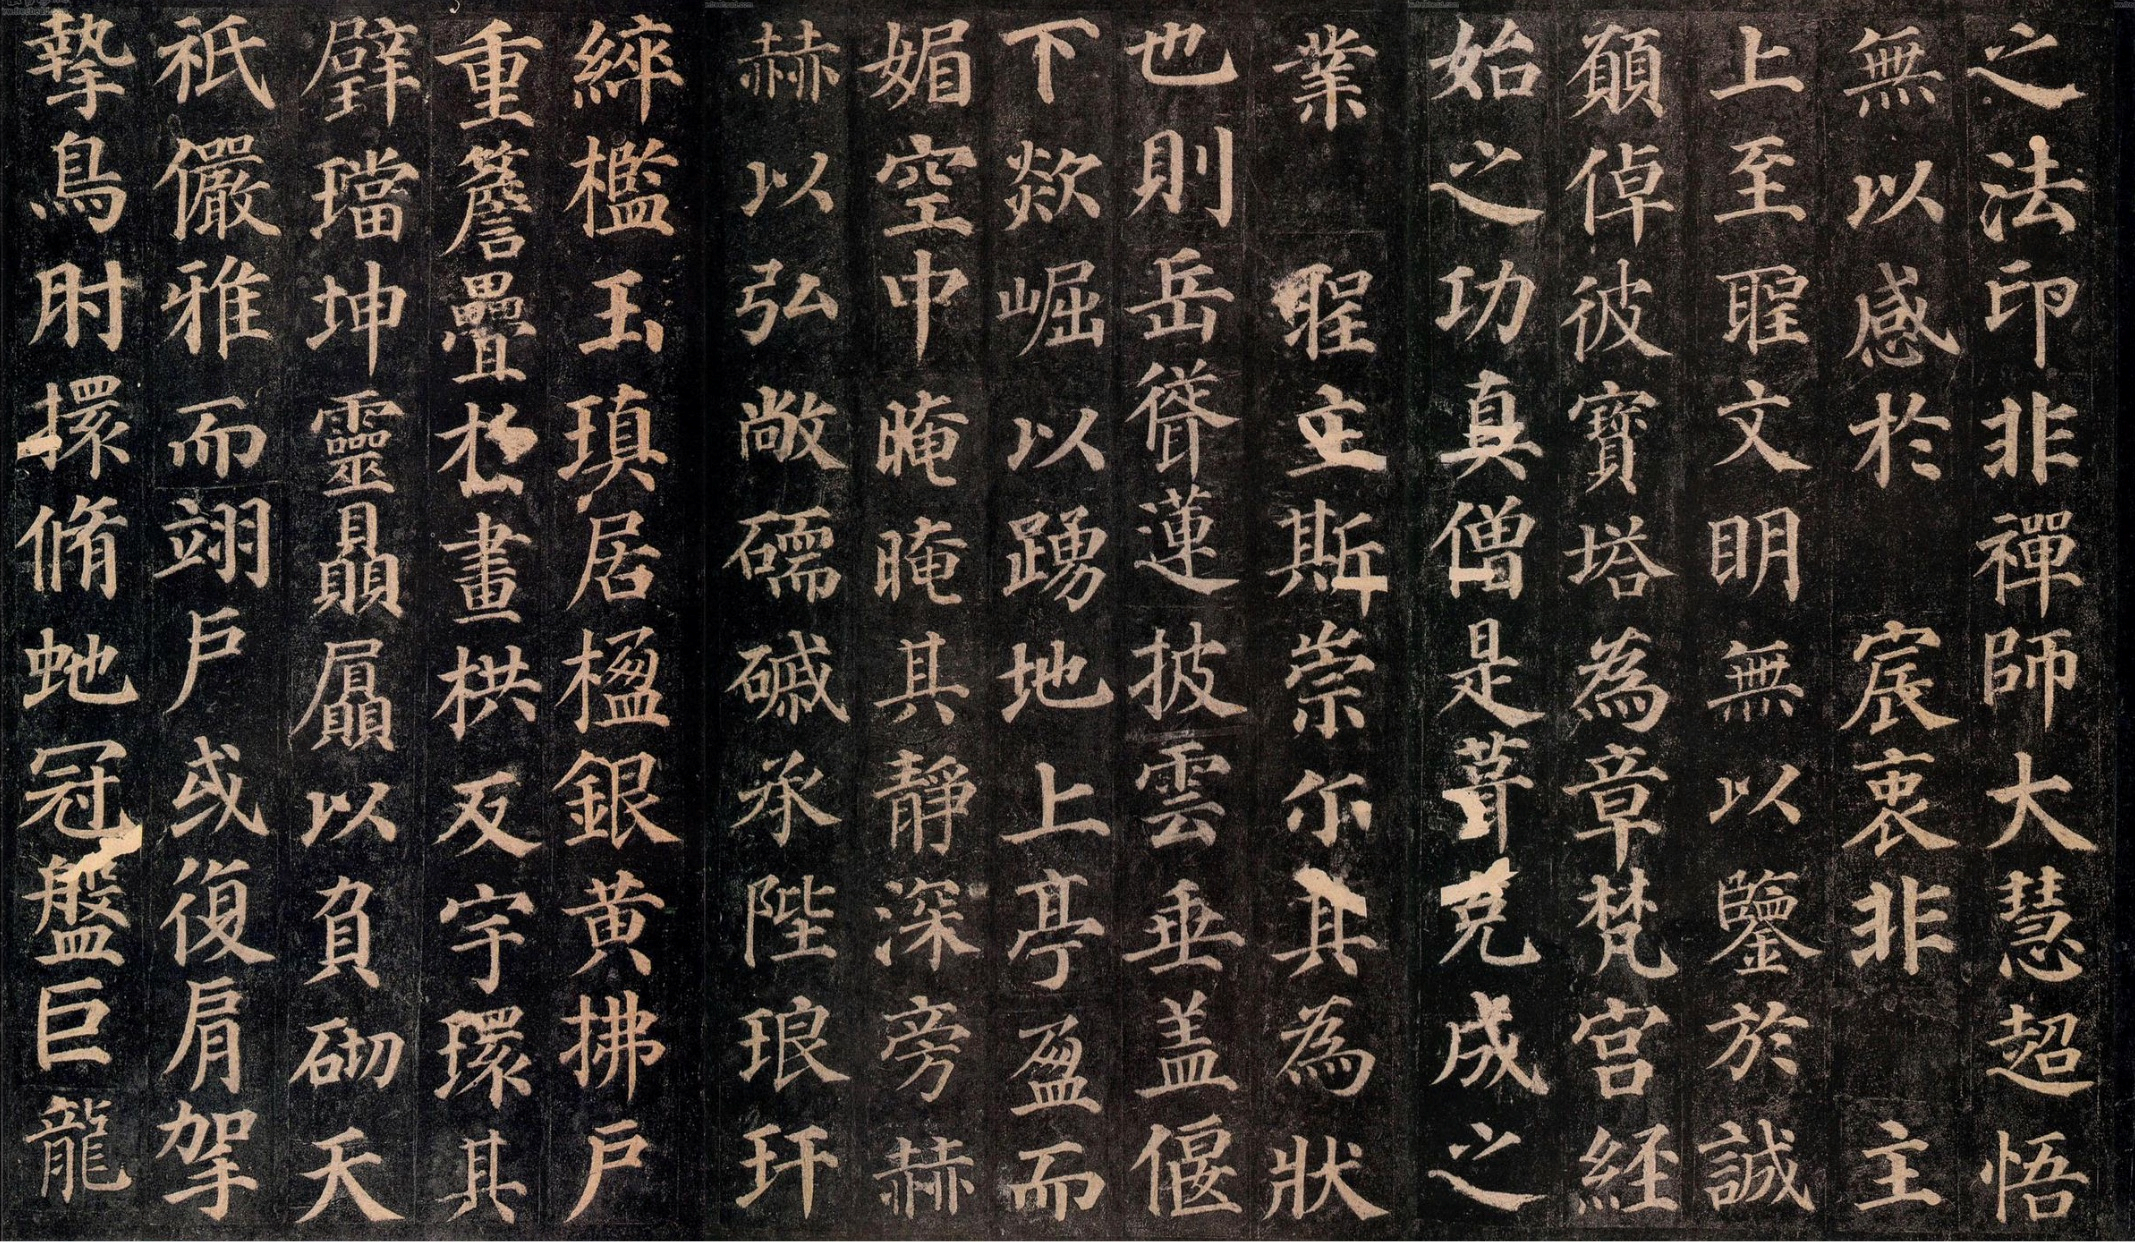 之法印非禪師大慧超悟
無以感於 宸衷非 主
上至聖文明無以鑒於誠
願倬彼寶塔為章梵宮経
始之功真僧是葺克成之
業 聖主斯崇尔其為狀
也則岳聳蓮披雲垂盖偃
下欻崛以踴地上亭盈而
媚空中晻晻其靜深旁赫
赫以弘敞礝磩承陛琅玕
綷檻玉瑱居楹銀黄拂戶
重簷疊於畫栱反宇環其
壁璫坤靈贔屓以負砌天
祇儼雅而翊戶或復肩拏
摯鳥肘擐脩虵冠盤巨龍